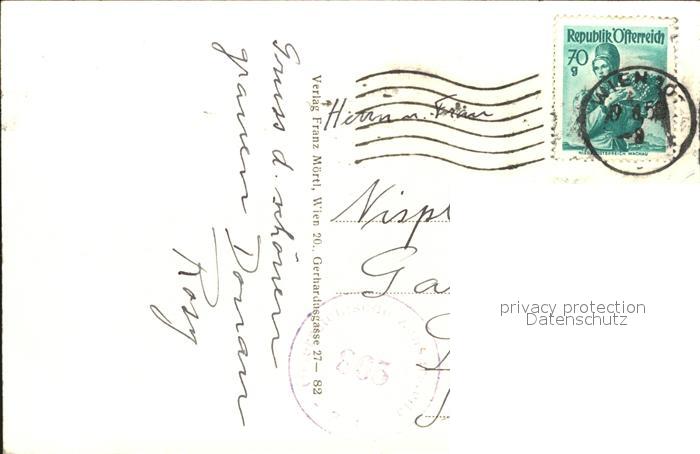 Gruss d. schönen
grauen Donau
Rosy
Verlag Franz Mörtl, Wien 20., Gerhardusgasse 27— 82
Herrn u. Frau
Nispl
Ga
Republik Österreich
70
g
WIEN 101
803
privacy protection
Datenschutz